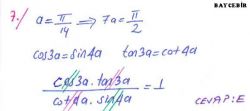 BAYCEBİR
7.) a = π/14 ⟹ 7a = π/2
cos3a = sin4a tan3a = cot4a
cos3a . tan3a / cot4a . sin4a = 1
CEVAP: E